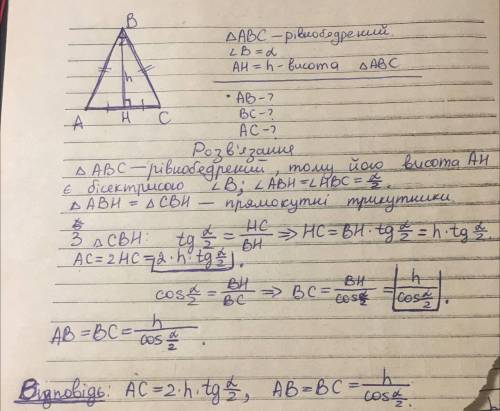 B
h
A H C
△ABC — рівнобедрений.
∠B = α
AH = h - висота △ABC
AB - ?
BC - ?
AC - ?
Розв'язання
△ABC — рівнобедрений, тому його висота AH
є бісектрисою ∠B; ∠ABH = ∠HBC = α/2.
△ABH = △CBH — прямокутні трикутники.
З △CBH: tg α/2 = HC/BH ⟹ HC = BH · tg α/2 = h · tg α/2.
AC = 2HC = 2 · h · tg α/2.
cos α/2 = BH/BC ⟹ BC = BH/cos α/2 = h/cos α/2.
AB = BC = h/cos α/2.
Відповідь: AC = 2 · h · tg α/2, AB = BC = h/cos α/2.